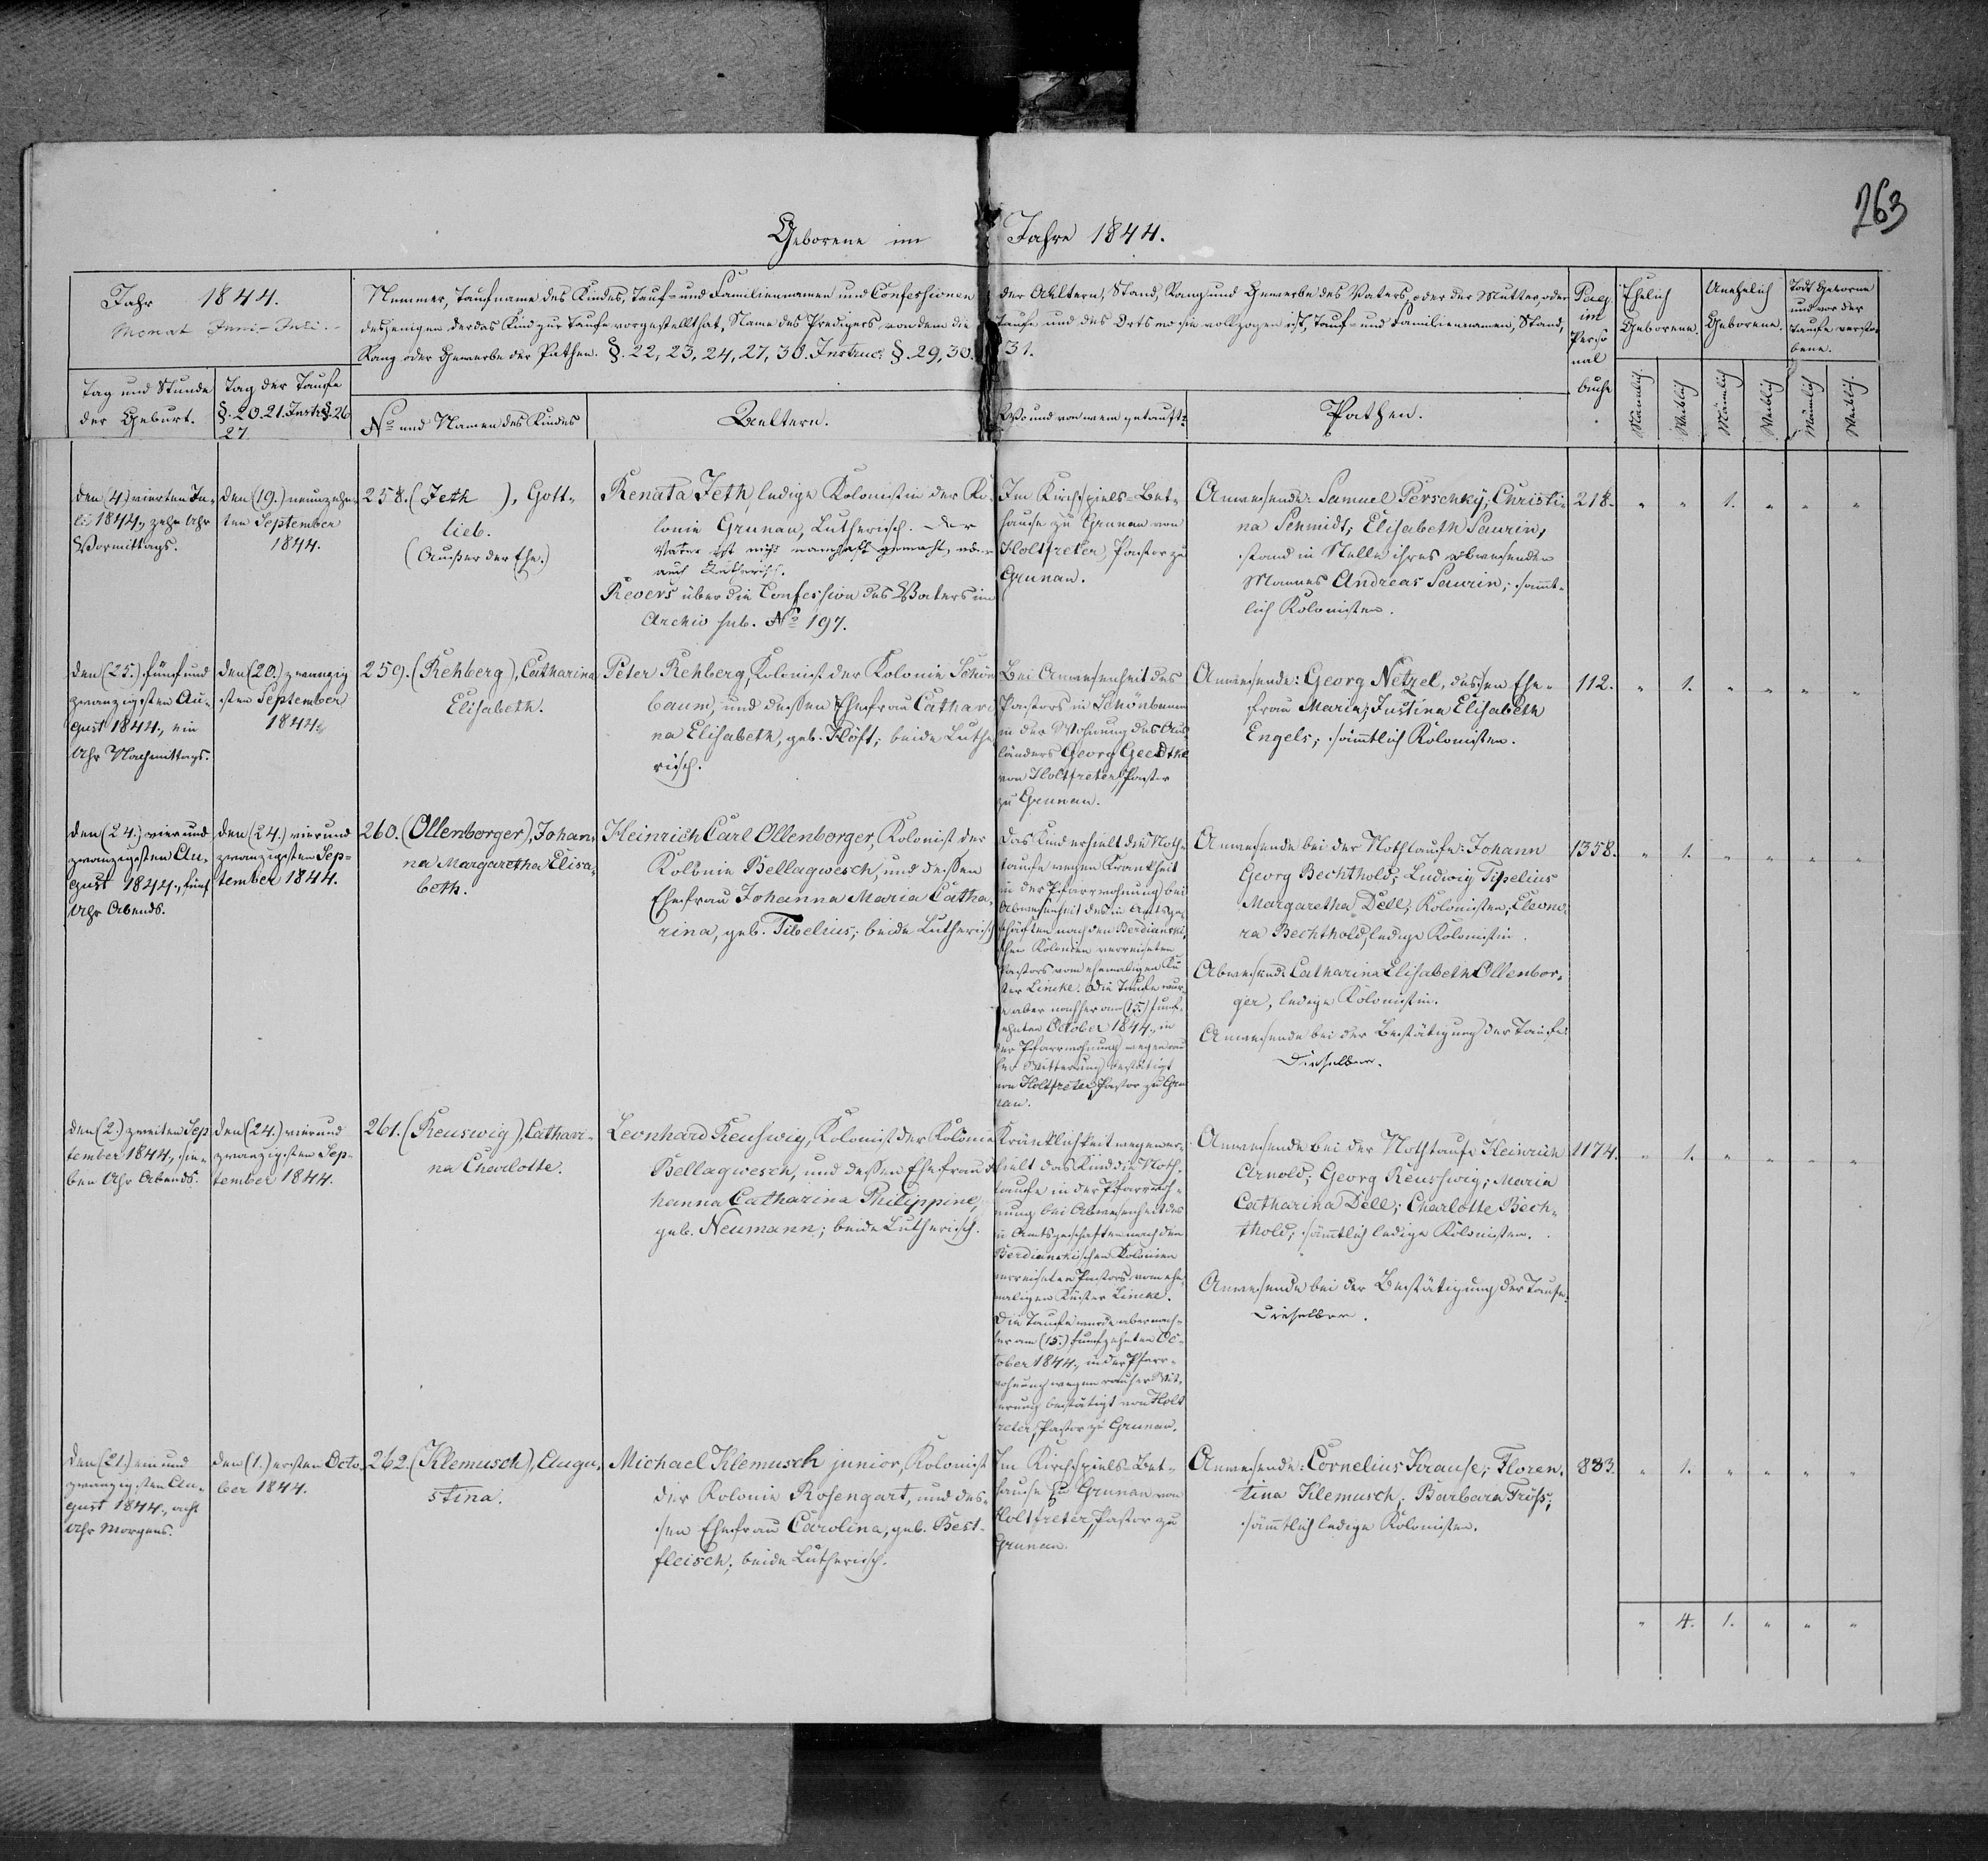 263
Geborene im Jahre 1844.
Jahr 1844.
Monat Juni-Juli.
Nummer, Taufname des Kindes, Tauf- und Familiennamen und Confessionen der Aeltern, Stand, Rang und Gewerbe des Vaters, oder der Mutter, oder
desjenigen der das Kind zur Taufe vorgestellt hat, Name des Predigers von dem die Taufe und des Orts wo sie vollzogen ist, Tauf- und Familiennamen, Stand,
Rang oder Gewerbe der Pathen. §. 22, 23, 24, 27, 30. Instruc. §. 29, 30. 31.
Pag.
im
Perso
nal
buche
Ehelich
Geborene.
Unehelich
Geborene.
Todt Geborene
und vor der
Taufe verstor
bene.
Tag und Stunde
der Geburt.
Tag der Taufe
§. 20. 21. Instr. §. 26
27.
No und Namen des Kindes
Aeltern.
Wo und von wem getauft:
Pathen.
Männlich.
Weiblich
Männlich
Weiblich
Männlich
Weiblich.
den (4.) vierten Ju-
li 1844., zehn Uhr
Vormittags.
den (19.) neunzehn-
ten September
1844.
258. (Jeth ), Gott-
lieb.
(Außer der Ehe.)
Renata Jeth, ledige Kolonistin der Ko-
lonie Grunau, Lutherisch. Der
Vater ist nicht namhaft gemacht, aber
auch Lutherisch.
Revers über die Confession des Vaters im
Archiv sub. No 197.
Im Kirchspiels-Bet-
hause zu Grunau von
Holtfreter, Pastor zu
Grunau.
Anwesende: Samuel Perschky; Christi-
na Schmidt; Elisabeth Saurin,
stand in Stelle ihres abwesenden
Mannes Andreas Saurin; sämmt-
lich Kolonisten.
218. " " 1. " " "
den (25.) fünf und
zwanzigsten Au-
gust 1844., ein
Uhr Nachmittags.
den (20.) zwanzig
sten September
1844.
259. (Rehberg), Catharina
Elisabeth.
Peter Rehberg, Kolonist der Kolonie Schön
baum, und dessen Ehefrau Cathari
na Elisabeth, geb. Höft; beide Luthe
risch.
Bei Anwesenheit des
Pastors in Schönbaum
in der Wohnung des Aus-
länders Georg Geedtke
von Holtfreter, Pastor
zu Grunau.
Anwesende: Georg Netzel, dessen Ehe-
frau Maria; Justina Elisabeth
Engels; sämmtlich Kolonisten.
112. " 1. " " " "
den (24.) vier und
zwanzigsten Au-
gust 1844., fünf
Uhr Abends.
den (24.) vier und
zwanzigsten Sep-
tember 1844.
260. (Ollenborger), Johan-
na Margaretha Elisa-
beth.
Heinrich Carl Ollenborger, Kolonist der
Kolonie Bellagwesch, und dessen
Ehefrau Johanna Maria Catha-
rina, geb. Tibelius; beide Lutherisch
Das Kind erhielt die Noth-
taufe wegen Krankheit
in der Pfarrwohnung bei
Abwesenheit des in Amtsge-
schäften nach den Berdianski-
schen Kolonien verreiseten
Pastors vom ehemaligen Kü
ster Lincke. Die Taufe wur-
e aber nachher am (15.) funf-
zehnten October 1844., in
der Pfarrwohnung wegen rau
her Witterung bestätigt
von Holtfreter, Pastor zu Gru
nau.
Anwesende bei der Nothtaufe: Johann
Georg Bechthold; Ludwig Tipelius
Margaretha Dell; Kolonisten; Eleono-
ra Bechthold, ledige Kolonistin.
Abwesend: Catharina Elisabeth Ollenbor-
ger, ledige Kolonistin.
Anwesende bei der Bestätigung der Taufe:
Dieselben.
1358. " 1. " " " "
den (2.) zweiten Sep
tember 1844., sie-
ben Uhr Abends.
den (24.) vier und
zwanzigsten Sep-
tember 1844.
261. (Reuswig), Cathari-
na Charlotte.
Leonhard Reuswig, Kolonist der Kolonie
Bellagwesch, und dessen Ehefrau Jo
hanna Catharina Philippine,
geb. Neumann; beide Lutherisch.
Kränklichkeit wegen er-
hielt das Kind die Noth-
taufe in der Pfarrwoh-
nung bei Abwesenheit des
in Amtsgeschäften nach den
Berdianskischen Kolonien
verreiseten Pastors vom ehe-
maligen Küster Lincke.
Die Taufe wurde aber nach-
her am (15.) funfzehnten Oc-
tober 1844., in der Pfarr-
wohnung wegen rauher Wit-
terung bestätigt von Holt
freter, Pastor zu Grunau.
Anwesende bei der Nothtaufe Heinrich
Arnold; Georg Reuswig; Maria
Catharina Dell; Charlotte Bech-
thold; sämmtlich ledige Kolonisten.
Anwesende bei der Bestätigung der Taufe:
Dieselben.
1174. " 1. " " " "
den (21.) ein und
zwanzigsten Au-
gust 1844., acht
Uhr Morgens.
den (1.) ersten Octo-
ber 1844.
262. (Klemusch), Augu-
stina.
Michael Klemusch junior, Kolonist
der Kolonie Rosengart, und des-
sen Ehefrau Carolina, geb. Best-
fleisch; beide Lutherisch.
Im Kirchspiels-Bet-
hause zu Grunau von
Holtfreter, Pastor zu
Grunau.
Anwesende: Cornelius Krause; Floren-
tina Klemusch; Barbara Fröse;
sämmtlich ledige Kolonisten.
833. " 1. " " " "
" 4. 1. " " "